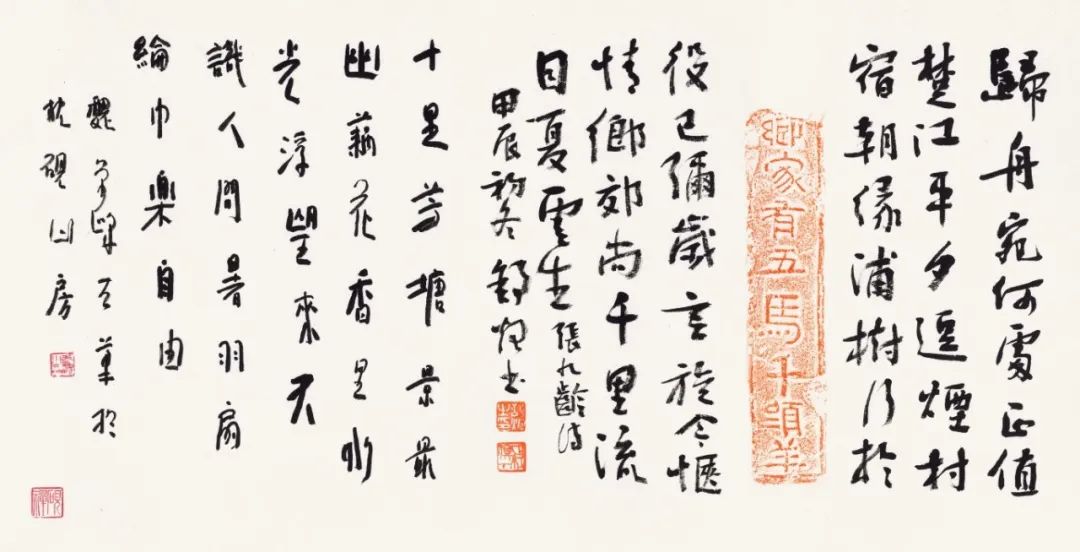 歸舟宛何處正值
楚江平夕逗煙村
宿朝緣浦樹行於
家有五馬千頭羊
役已彌歲言旋今愜
情鄉郊尚千里流
目夏雲生 張九齡詩
甲辰初冬 書
十里芳塘景最
幽藕花香里水
光浮望來不
識人間暑羽扇
綸巾樂自由
草於
枕硯山房